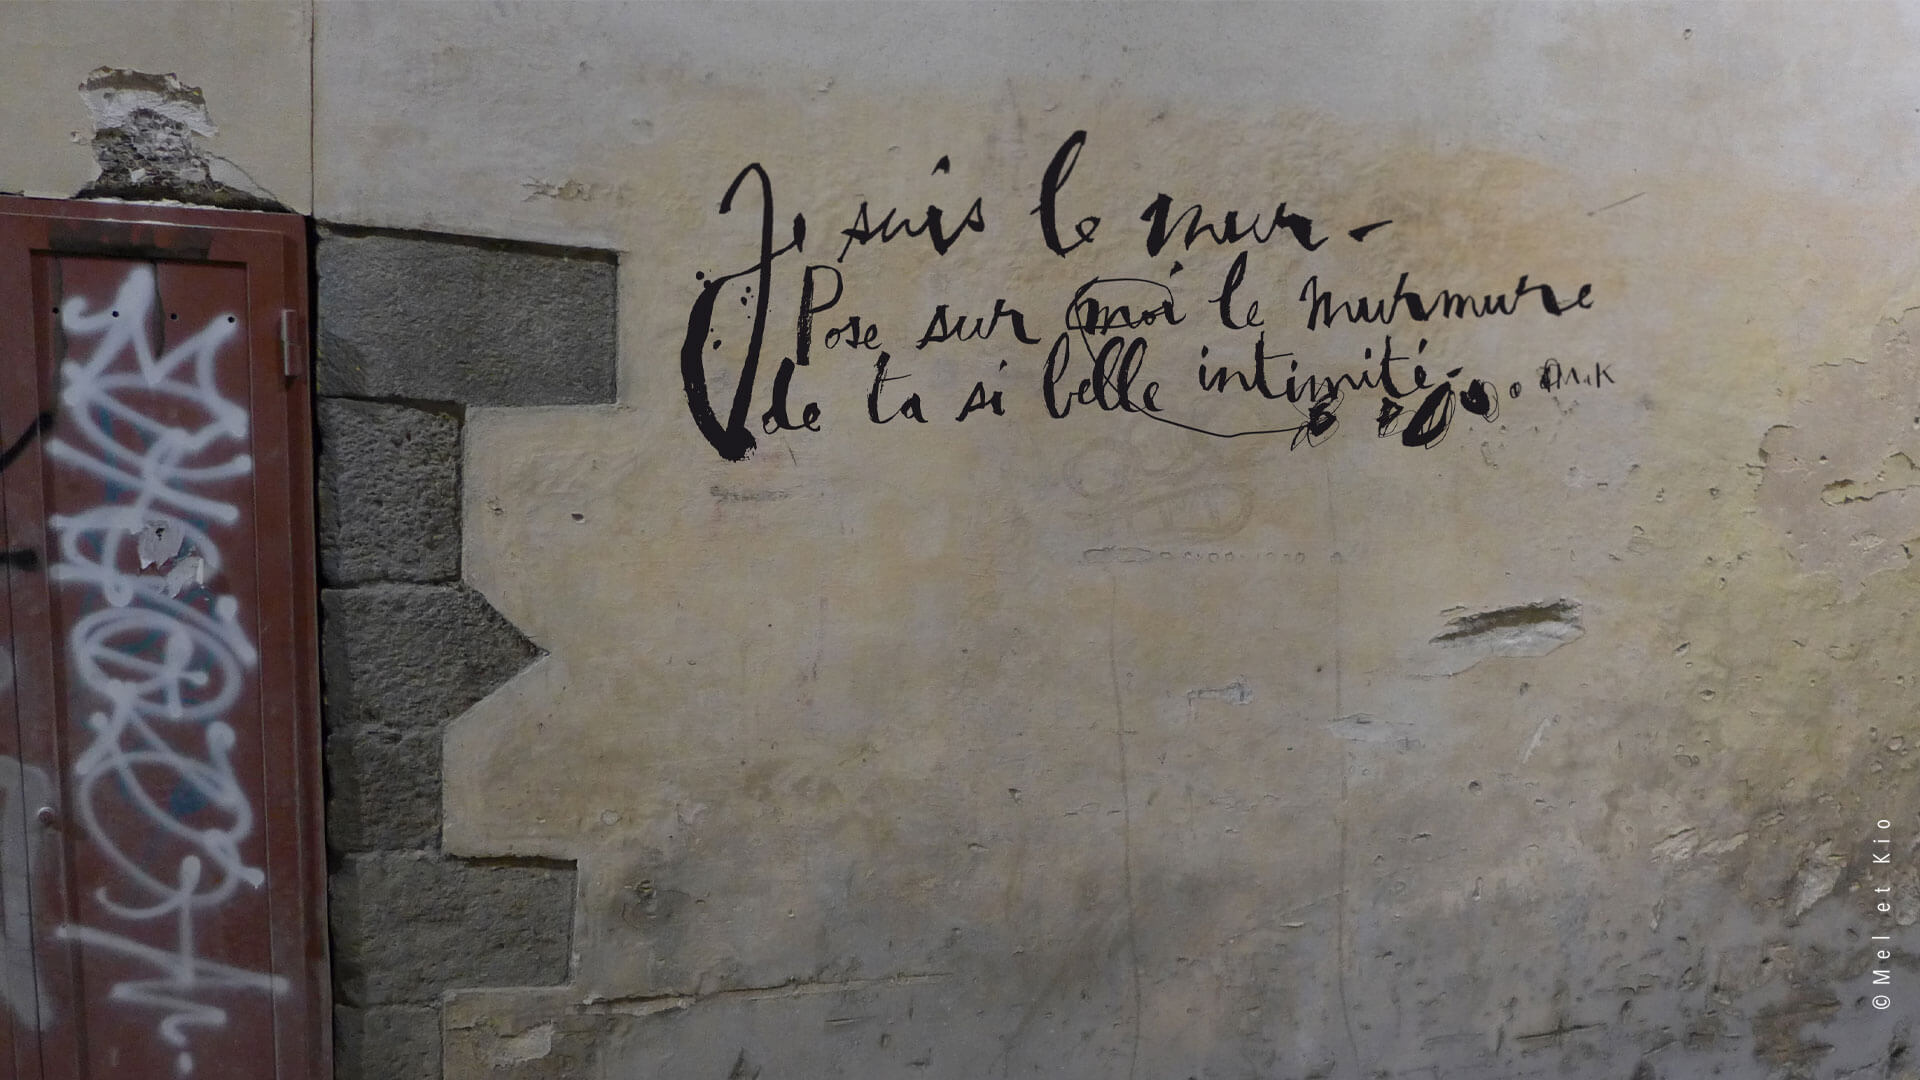 Je suis le mur -
Pose sur moi le murmure
de ta si belle intimité.
©Melet Kio